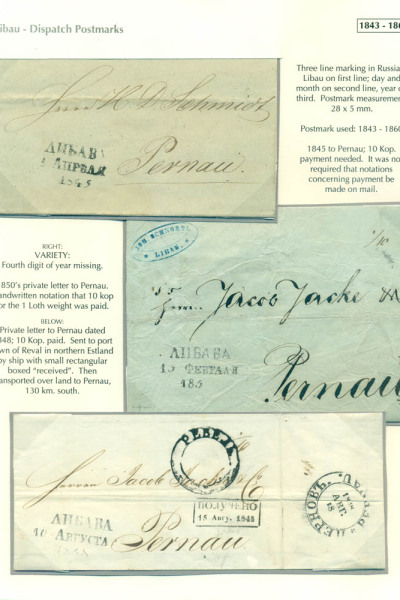 Libau - Dispatch Postmarks
1843 - 186
Three line marking in Russia
Libau on first line; day and
month on second line, year o
third. Postmark measuremen
28 x 5 mm.
Postmark used: 1843 - 1860
1845 to Pernau; 10 Kop.
payment needed. It was no
required that notations
concerning payment be
made on mail.
Herrn H. D. Schmidt
Pernau.
ЛИБАВА
1 АПРѢЛЯ
1845
RIGHT:
VARIETY:
Fourth digit of year missing.
850's private letter to Pernau.
andwritten notation that 10 kop
or the 1 Loth weight was paid.
BELOW:
Private letter to Pernau dated
848; 10 Kop. paid. Sent to port
wn of Reval in northern Estland
by ship with small rectangular
boxed "received". Then
ansported over land to Pernau,
130 km. south.
JOH. SCHNOBEL
LIBAU.
Herrn Jacob Jacke
ЛИБАВА
15 ФЕВРАЛЯ
185
Pernau
РЕВЕЛЬ
Herrn Jacob Jacke & C
ПОЛУЧЕНО
15 Авгу. 1848
ЛИБАВА
10 АВГУСТА
1848
Pernau.
ПЕРНОВЪ
АВГ.
18